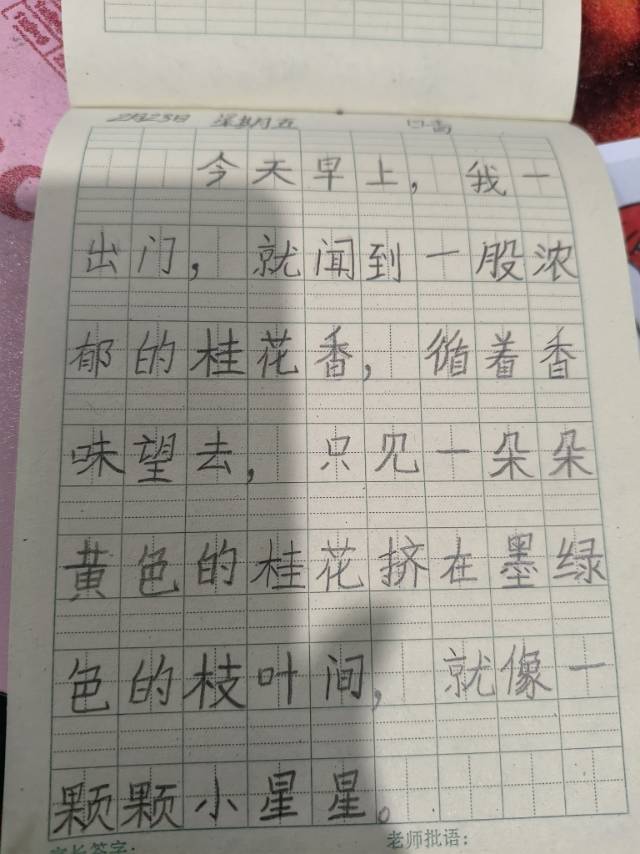 2月23日 星期五
今天早上，我一
出门，就闻到一股浓
郁的桂花香，循着香
味望去，只见一朵朵
黄色的桂花挤在墨绿
色的枝叶间，就像一
颗颗小星星。
家长签字： 老师批语：